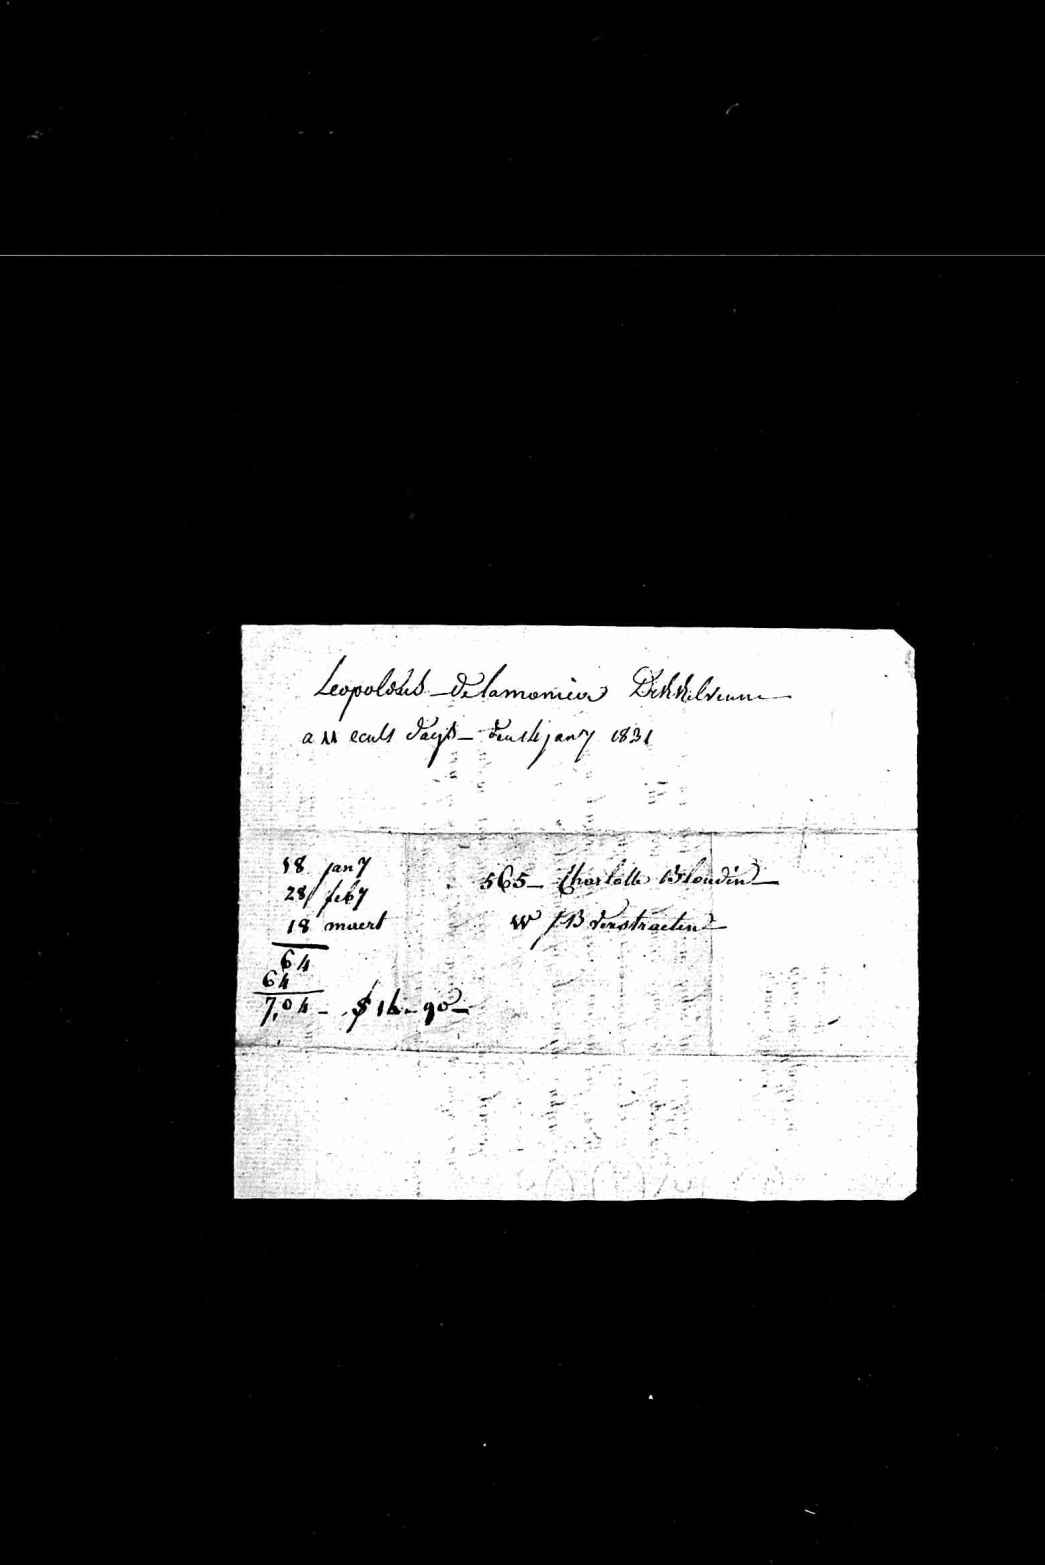 Leopoldus Delamonier Dikkelvenne
a 11 cents dags den 14 jan7 1831
18 jan7
28 feb7
18 maert
64
64
7,04 - f 14-90
565 - Charlotte Blondin
W J B Verstraeten